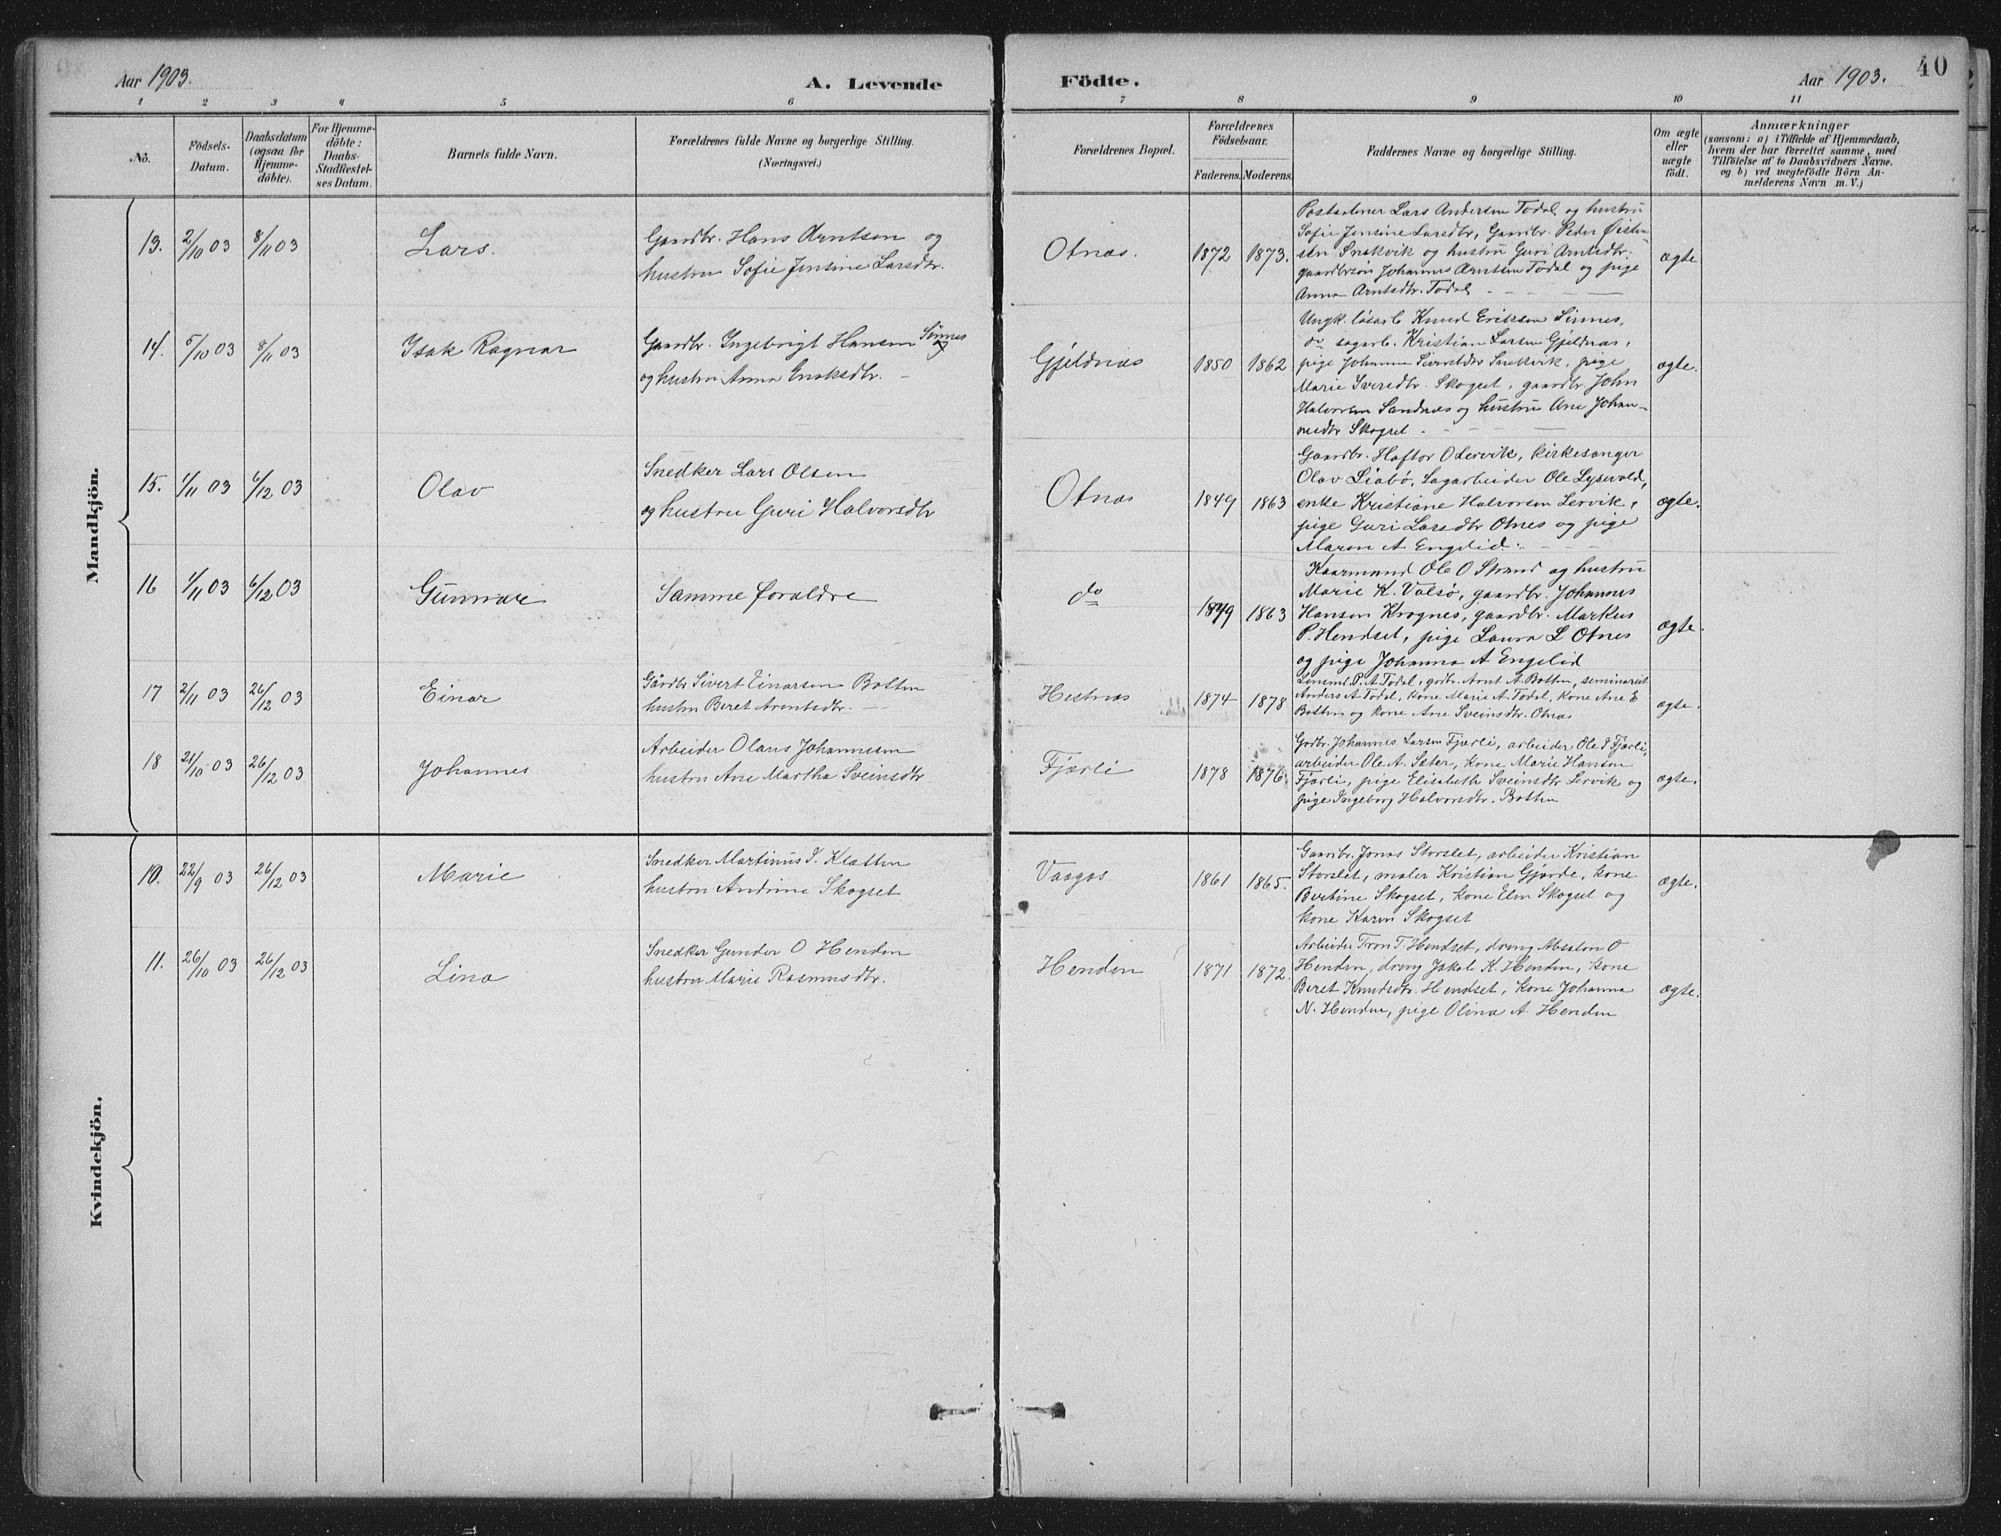 Aar 1903.
A. Levende
Födte.
Aar 1903.
40
1
2
3
4
5
6
7
8
9
10
11
No.
Födsels-
Datum.
Daabsdatum
(ogsaa for
Hjemme-
döbte).
For Hjemme-
döbte:
Daabs-
Stadfæstel-
ses Datum.
Barnets fulde Navn.
Forældrenes fulde Navne og borgerlige Stilling.
(Næringsvei.)
Forældrenes Bopæl.
Forældrenes
Födselsaar.
Faderens.
Moderens.
Faddernes Navne og borgerlige Stilling.
Om ægte
eller
uægte
födt.
Anmærkninger
(saasom: a) i Tilfælde af Hjemmedaab,
hvem der har forrettet samme, med
Tilföielse af to Daabsvidners Navne.
og b) ved uægtefödte Börn An-
melderens Navn m. V.)
Mandkjön.
13.
2/10 03
8/11 03
Lars.
Gaardbr. Hans Arntsen og
hustru Sofie Jensine Larsdtr.
Otnæs.
1872
1873.
Postaabner Lars Andersen Todal og hustru
Sofie Jensine Larsdtr, Gaardbr. Peder Østen
sen Snekvik og hustru Guri Arntsdtr.
gaardbrsøn Johannes Arntsen Todal og pige
Anna Arntsdtr. Todal
ægte
14.
5/10 03
8/11 03
Isak Ragnar
Gaardbr. Ingebrigt Hansen Sinnes
og hustru Anna Eriksdtr.
Gjeldnæs
1850
1862
Ungk. løsarb Knud Eriksen Sinnes,
do sagarb. Kristian Larsen Gjeldnæs,
pige Johanna Sivertsdtr Snekvik, pige
Marie Sivertdtr. Skogset, gaardbr. John
Halvorsen Sandnæs og hustru Ane Johan-
nesdtr Skogset
ægte.
15.
1/11 03
6/12 03
Olav
Snedker Lars Olsen
og hustru Guri Halvorsdtr
Otnæs
1849
1863
Gaardbr. Haftor O Lervik, kirkesanger
Olav Liabø, Sagarbeider Ole Lysevold,
enke Kristiane Halvorsen Lervik,
pige Guri Larsdtr Otnes og pige
Maren A Engelid.
ægte.
16
1/11 03
6/12 03
Gunnar
Samme forældre
do
1849
1863
Kaarmand Ole O Strand og hustru
Marie K. Valsø, gaardbr. Johannes
Hansen Krognes, gaardbr. Markus
P. Hendset, pige Laura L Otnes
og pige Johanna A Engelid
ægte.
17
2/11 03
26/12 03
Einar
Gårdbr Sivert Einarsen Botten
hustru Beret Arentsdtr.
Hestnæs
1874
1878
Lensmd. P. A. Todal, gdbr. Arnt A. Botten, seminarist
Anders A. Todal, kone Marie A. Todal, kone Ane E
Botten og kone Ane Sveinsdtr. Otnæs
ægte.
18
31/10 03
26/12 03
Johannes
Arbeider Olaus Johannesen
hustru Ane Martha Sveinsdtr
Fjærli
1878
1876.
Gdbr. Johannes Larsen Fjærli, arbeider Ole J Fjærli,
arbeider Ole A. Sæter, kone Marie Hansen
Fjærli, pige Elisabeth Sveinsdtr Lervik og
pige Ingeborg Halvorsdtr. Botten
ægte.
Kvindekjön.
10.
22/9 03
26/12 03
Marie
Snedker Martinus J. Kletten
hustru Andrine Skogset
Vaagos
1861
1865.
Gaardbr. Jonas Storslet, arbeider Kristian
Storslet, maler Kristian Gjørde, kone
Bertine Skogset, kone Elen Skogset og
kone Karen Skogset
ægte.
11.
26/10 03
26/12 03
Lina
Snedker Gunder O Henden
hustru Marie Rasmusdtr.
Henden
1871
1872.
Arbeider Tron T. Hendset, dreng Absalon O
Henden, dreng Jakob K. Henden, kone
Beret Knudsdtr. Hendset, kone Johanna
N. Henden, pige Olina A Henden
ægte.